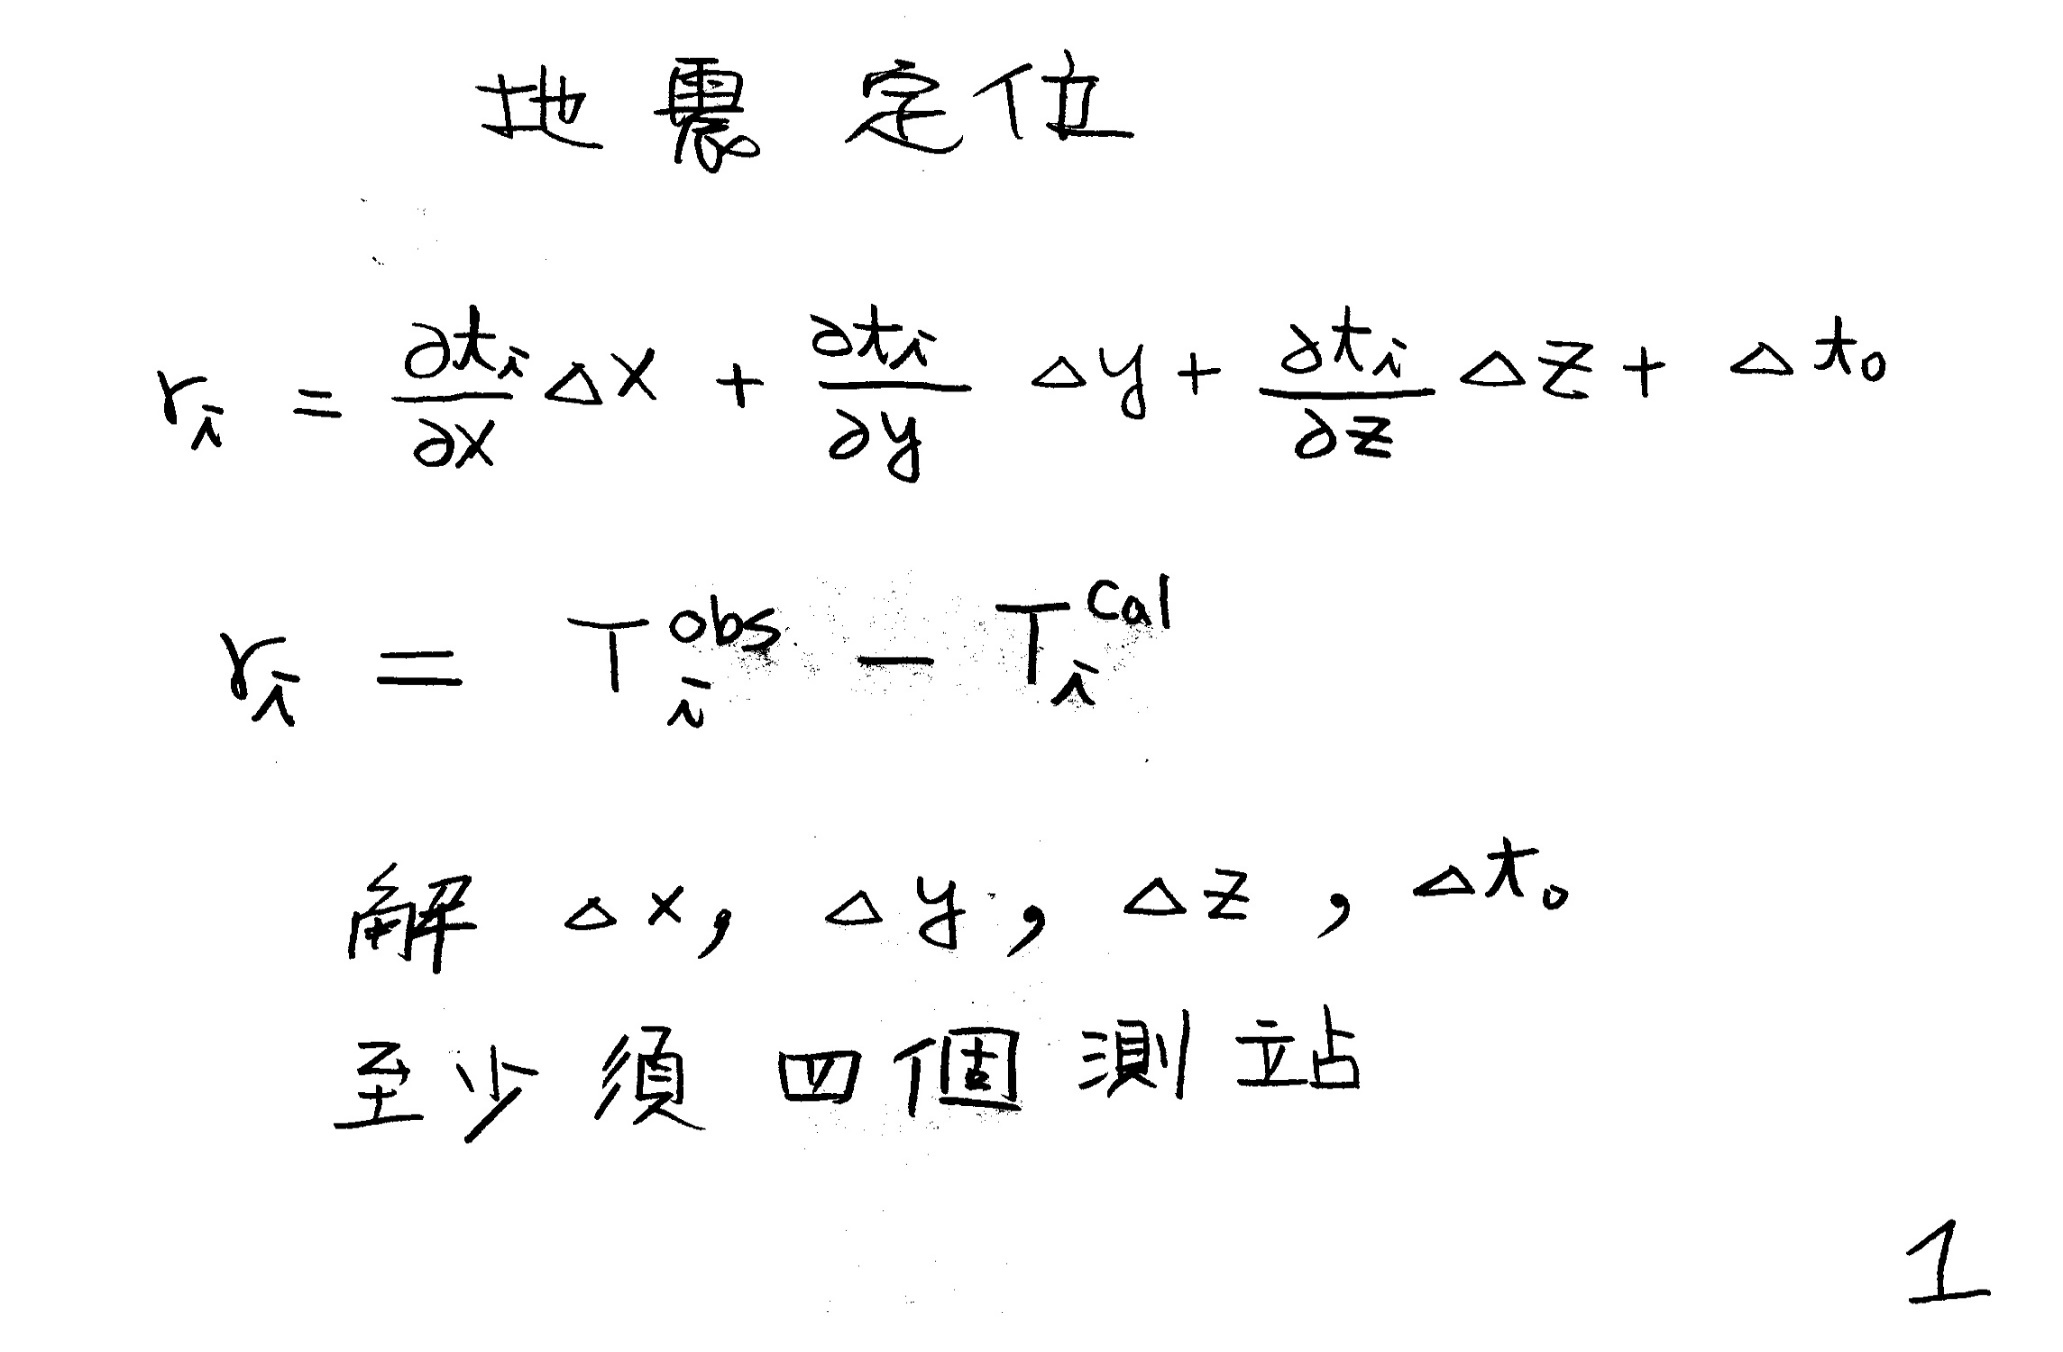 地震定位
rᵢ = ∂tᵢ/∂x Δx + ∂tᵢ/∂y Δy + ∂tᵢ/∂z Δz + Δt₀
rᵢ = Tᵢ^obs − Tᵢ^Cal
解 Δx, Δy, Δz, Δt₀
至少須四個測站
1